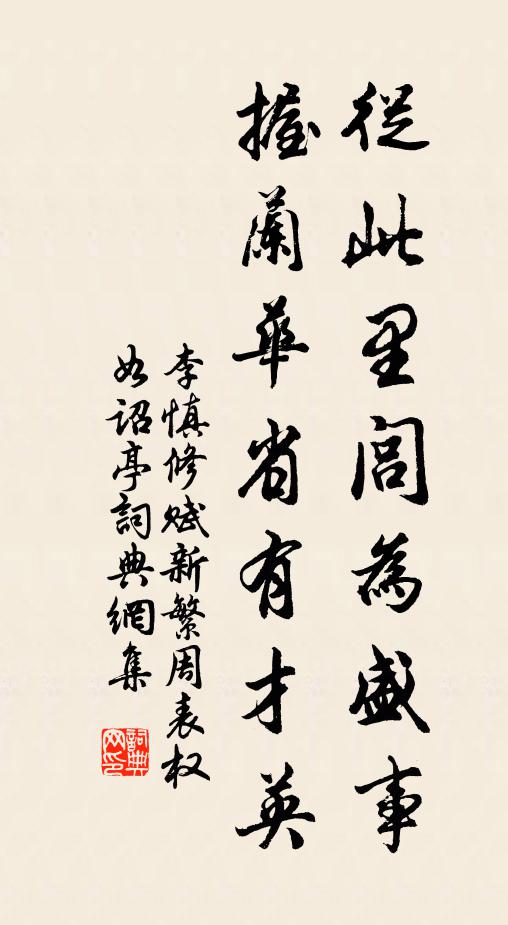 從此里閭為盛事
握蘭華省有才英
李慎修賦新繁周表权
如詔亭詞典網集
詞典网印